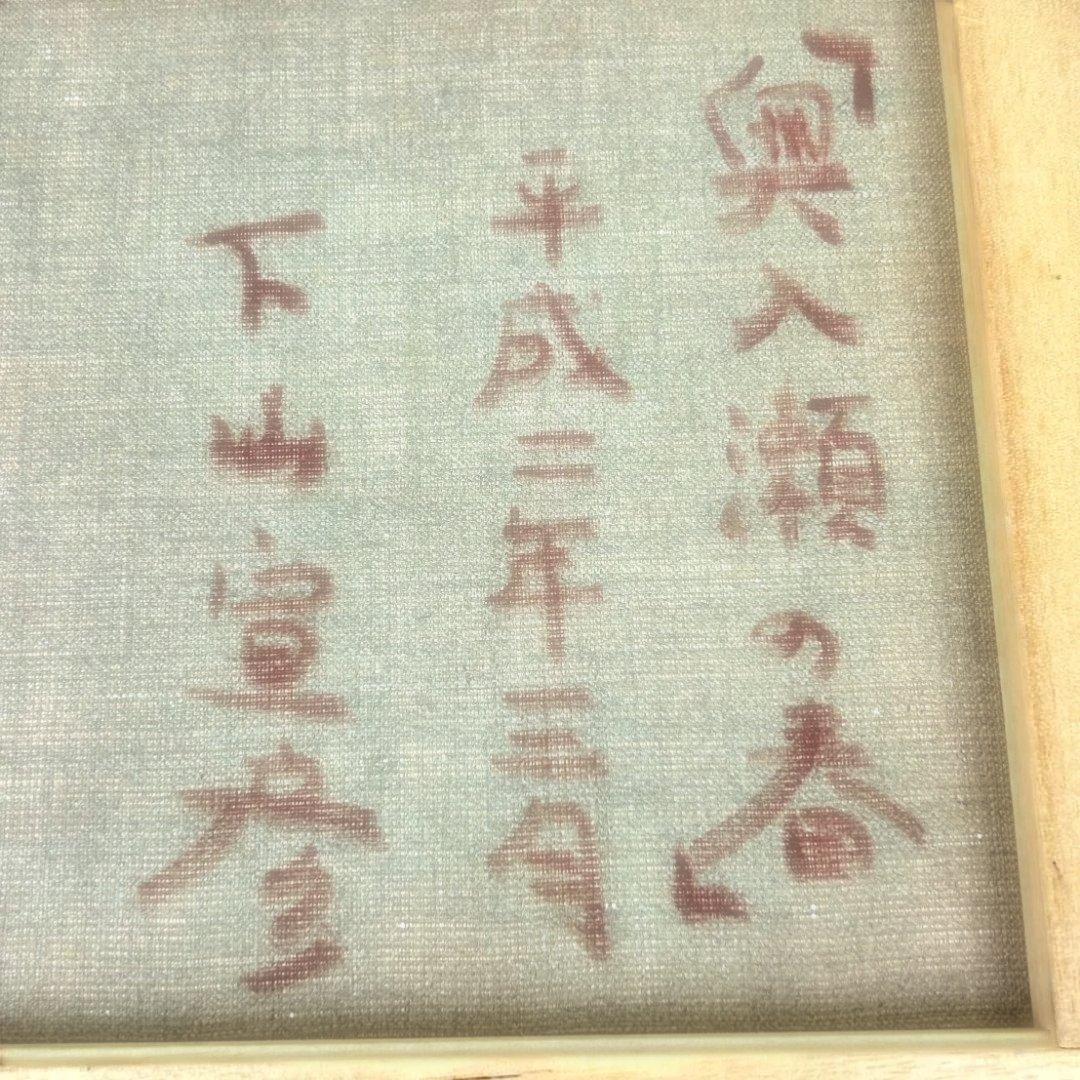 「奥入瀬の春」
平成二年三月
下山宣彦